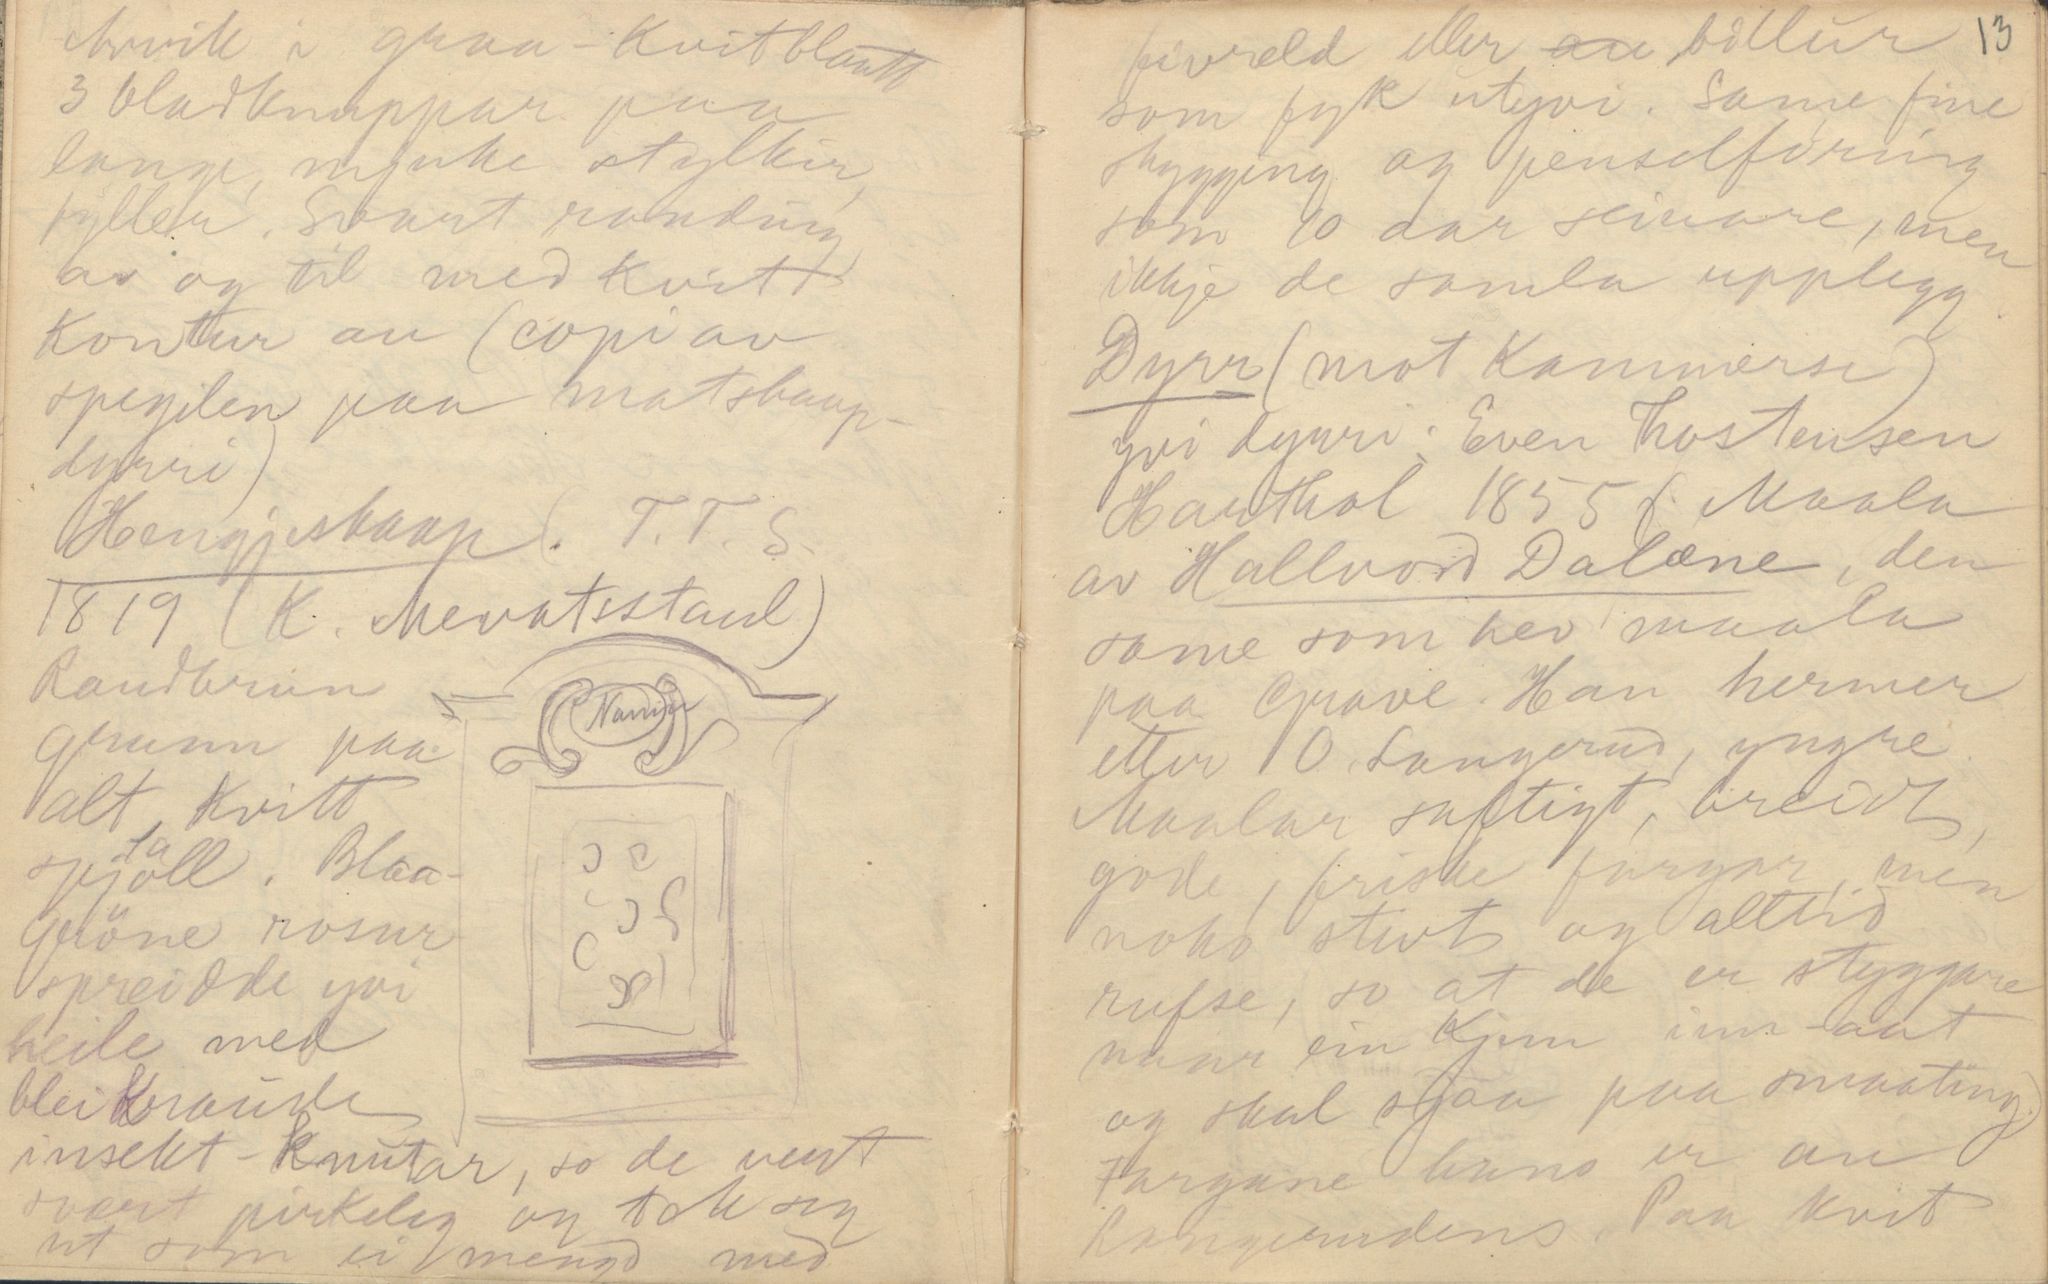 krvik i graa-kvitblaatt
3 bladknappar paa
lange, mjuke stylkir,
fyller. Svart randing
av og til med kvit
kontur au (copi av
spegilen paa matskaap-
dyrri)
Hengjeskaap (. T.T.S.
1819 (K. Mevatsstaul)
Raudbrun
grunn paa
alt, kvitt
spjöll. Blaa-
gröne rosur
spreidde yvi
heile med
bleikraude
insekt-knutar, so de vert
svært pirkeleg og tek seg
ut som ei mengd med
13
fivreld eller billur
som fyk utyvi. Same fine
skygging og penselföring
som 10 aar seinare, men
ikkje de samla upplegg.
Dyrr (mot kammerse)
yvi dyrri: Even Thostensen
Haathol 1855 (. Maala
av Hallvord Dalæne, den
same som hev maala
paa Grave. Han hermer
etter O. Langerud, yngre.
Maalar saftigt, breidt,
gode, friske fargar, men
noko stivt og alltid
rufse, so at de er styggare
naar ein kjem inn-aat
og skal sjaa paa smaating.
Fargane hans er au
Langerudens. Paa kvit
Namn